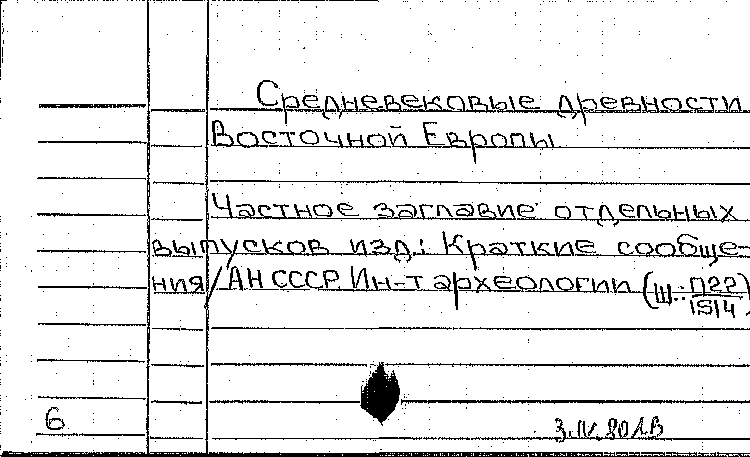 Средневековые древности
Восточной Европы
Частное заглавие отдельных
выпусков изд.: Краткие сообще-
ния/АН СССР. Ин-т археологии (Ш: П22/1514.)
6
3.IV.80 ЛВ